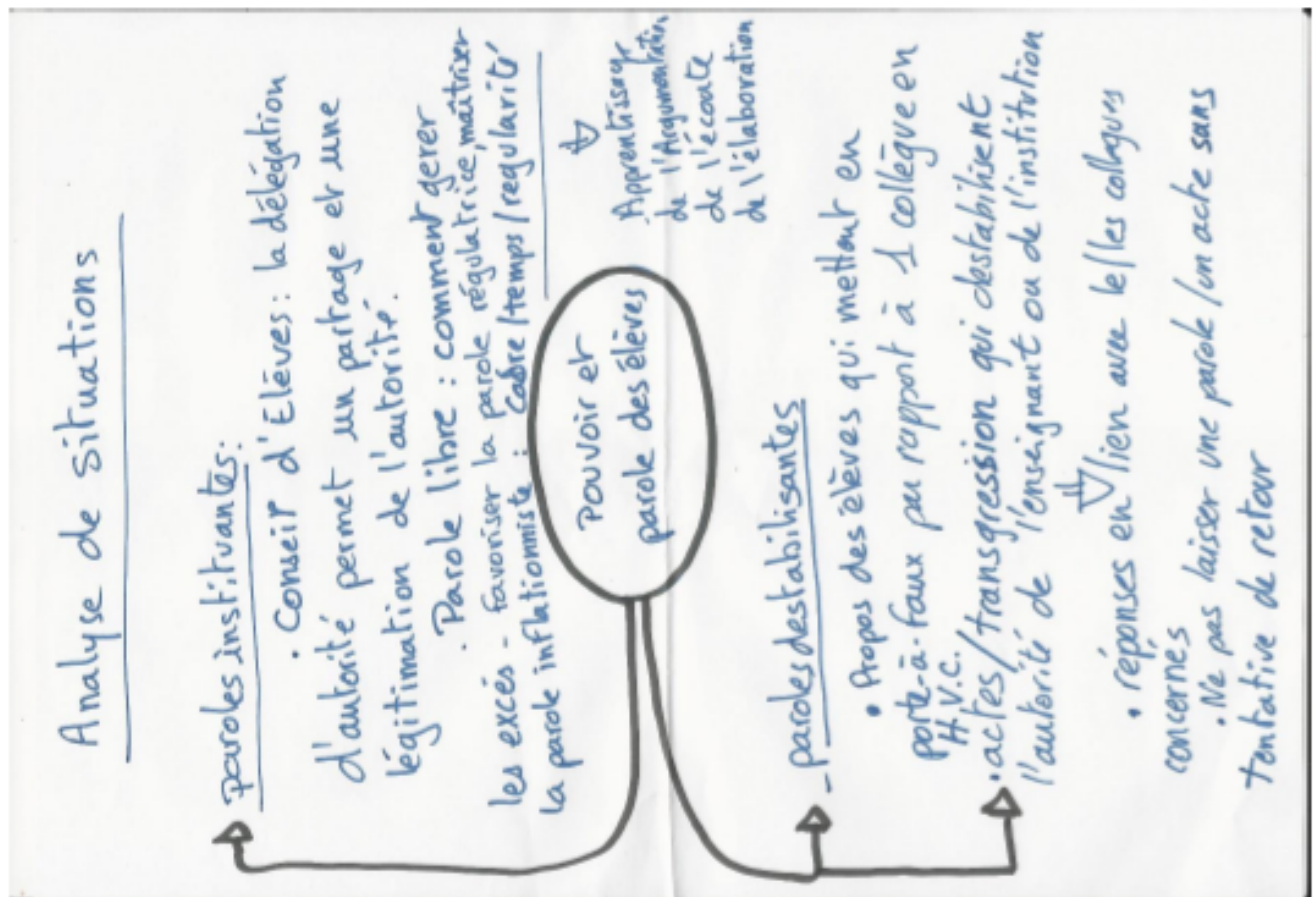 Analyse de situations
paroles instituantes:
• Conseil d'Élèves: la délégation
d'autorité permet un partage et une
légitimation de l'autorité.
• Parole libre : comment gerer
les excés - favoriser la parole régulatrice, maîtriser
la parole inflationniste : cadre/temps/regularité
- Apprentissage
de l'Argumentation
de l'écoute
de l'élaboration
Pouvoir et
parole des élèves
- paroles destabilisantes
• Propos des élèves qui mettent en
porte-à-faux par rapport à 1 collègue en
H.V.C.
• actes/transgression qui destabilisent
l'autorité de l'enseignant ou de l'institution
• réponses en lien avec le/les collègues
concernés
• Ne pas laisser une parole/un acte sans
tentative de retour